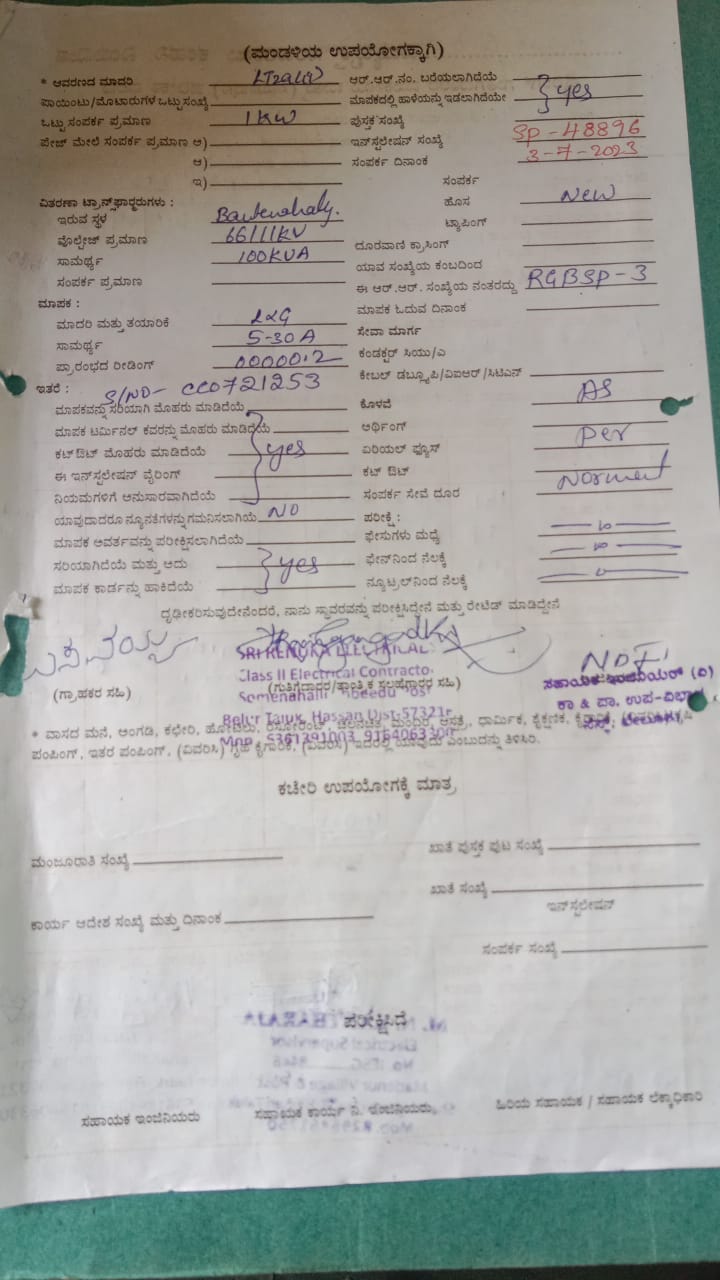 (ಮಂಡಳಿಯ ಉಪಯೋಗಕ್ಕಾಗಿ)
* ಆವರಣದ ಮಾದರಿ LT2a(ii)
ಪಾಯಿಂಟು/ಮೊಟಾರುಗಳ ಒಟ್ಟು ಸಂಖ್ಯೆ
ಒಟ್ಟು ಸಂಪರ್ಕ ಪ್ರಮಾಣ 1KW
ಪೇಜ್ ಮೇಲೆ ಸಂಪರ್ಕ ಪ್ರಮಾಣ ಅ)
ಆ)
ಇ)
ಆರ್.ಆರ್.ನಂ. ಬರೆಯಲಾಗಿದೆಯೆ
ಮಾಪಕದಲ್ಲಿ ಹಾಳೆಯನ್ನು ಇಡಲಾಗಿದೆಯೇ yes
ಪುಸ್ತಕ ಸಂಖ್ಯೆ
ಇನ್‌ಸ್ಟಲೇಷನ್ ಸಂಖ್ಯೆ SP-48896
ಸಂಪರ್ಕ ದಿನಾಂಕ 3-7-2023
ವಿತರಣಾ ಟ್ರಾನ್ಸ್‌ಫಾರ್ಮರುಗಳು :
ಇರುವ ಸ್ಥಳ
ವೊಲ್ಟೇಜ್ ಪ್ರಮಾಣ 66/11KV
ಸಾಮರ್ಥ್ಯ 100KVA
ಸಂಪರ್ಕ ಪ್ರಮಾಣ
ಸಂಪರ್ಕ
ಹೊಸ New
ಟ್ಯಾಪಿಂಗ್
ದೂರವಾಣಿ ಕ್ರಾಸಿಂಗ್
ಯಾವ ಸಂಖ್ಯೆಯ ಕಂಬದಿಂದ
ಈ ಆರ್.ಆರ್. ಸಂಖ್ಯೆಯ ನಂತರದ್ದು RGBSP-3
ಮಾಪಕ ಓದುವ ದಿನಾಂಕ
ಮಾಪಕ :
ಮಾದರಿ ಮತ್ತು ತಯಾರಿಕೆ L&G
ಸಾಮರ್ಥ್ಯ 5-30A
ಪ್ರಾರಂಭದ ರೀಡಿಂಗ್ 0000012
ಸೇವಾ ಮಾರ್ಗ
ಕಂಡಕ್ಟರ್ ಸಿಯು/ಎ
ಕೇಬಲ್ ಡಬ್ಲ್ಯೂಪಿ/ವಿಐಆರ್/ಸಿಟಿಎಸ್
ಇತರೆ : S/NO- CC0721253
ಮಾಪಕವನ್ನು ಸರಿಯಾಗಿ ಮೊಹರು ಮಾಡಿದೆಯೆ
ಮಾಪಕ ಟರ್ಮಿನಲ್ ಕವರನ್ನು ಮೊಹರು ಮಾಡಿದೆಯೆ
ಕಟ್‌ಔಟ್ ಮೊಹರು ಮಾಡಿದೆಯೆ yes
ಈ ಇನ್‌ಸ್ಟಲೇಷನ್ ವೈರಿಂಗ್
ನಿಯಮಗಳಿಗೆ ಅನುಸಾರವಾಗಿದೆಯೆ
ಯಾವುದಾದರೂ ನ್ಯೂನತೆಗಳನ್ನು ಗಮನಿಸಲಾಗಿಯೆ NO
ಮಾಪಕ ಅವರ್ತವನ್ನು ಪರೀಕ್ಷಿಸಲಾಗಿದೆಯೆ
ಸರಿಯಾಗಿದೆಯೆ ಮತ್ತು ಅದು yes
ಮಾಪಕ ಕಾರ್ಡನ್ನು ಹಾಕಿದೆಯೆ
ಕೊಳವೆ AS
ಅರ್ಥಿಂಗ್
ಏರಿಯಲ್ ಫ್ಯೂಸ್ per
ಕಟ್ ಔಟ್
ಸಂಪರ್ಕ ಸೇವೆ ದೂರ
ಪರೀಕ್ಷೆ :
ಫೇಸುಗಳು ಮಧ್ಯೆ
ಫೇಸ್‌ನಿಂದ ನೆಲಕ್ಕೆ
ನ್ಯೂಟ್ರಲ್‌ನಿಂದ ನೆಲಕ್ಕೆ
ದೃಢೀಕರಿಸುವುದೇನೆಂದರೆ, ನಾನು ಸ್ಥಾವರವನ್ನು ಪರೀಕ್ಷಿಸಿದ್ದೇನೆ ಮತ್ತು ರೇಟಿಡ್ ಮಾಡಿದ್ದೇನೆ
SRI RENUKA ELECTRICAL
Class II Electrical Contracto
(ಗ್ರಾಹಕರ ಸಹಿ)
(ಗುತ್ತಿಗೆದಾರರ/ತಾಂತ್ರಿಕ ಸಲಹೆಗಾರರ ಸಹಿ)
Belur Taluk, Hassan Dist-57321
ಸಹಾಯಕ ಇಂಜಿನಿಯರ್ (ವಿ)
ಕಾ & ಪಾ. ಉಪ-ವಿಭಾಗ
* ವಾಸದ ಮನೆ, ಅಂಗಡಿ, ಕಛೇರಿ, ಹೋಟೆಲು, ಧಾರ್ಮಿಕ, ಶೈಕ್ಷಣಿಕ,
ಪಂಪಿಂಗ್, ಇತರ ಪಂಪಿಂಗ್, (ವಿವರಿಸಿ) ಗೃಹ ಕೈಗಾರಿಕೆ, (ವಿವರಿಸಿ) ಇದರಲ್ಲಿ ಯಾವುದು ಎಂಬುದನ್ನು ತಿಳಿಸಿರಿ.
ಕಚೇರಿ ಉಪಯೋಗಕ್ಕೆ ಮಾತ್ರ
ಮಂಜೂರಾತಿ ಸಂಖ್ಯೆ
ಖಾತೆ ಪುಸ್ತಕ ಪುಟ ಸಂಖ್ಯೆ
ಖಾತೆ ಸಂಖ್ಯೆ
ಇನ್‌ಸ್ಟಲೇಷನ್
ಕಾರ್ಯ ಆದೇಶ ಸಂಖ್ಯೆ ಮತ್ತು ದಿನಾಂಕ
ಸಂಪರ್ಕ ಸಂಖ್ಯೆ
ಪರೀಕ್ಷಿಸಿದೆ
ಸಹಾಯಕ ಇಂಜಿನಿಯರು
ಸಹಾಯಕ ಕಾರ್ಯ ನಿ. ಇಂಜಿನಿಯರು,
ಹಿರಿಯ ಸಹಾಯಕ / ಸಹಾಯಕ ಲೆಕ್ಕಾಧಿಕಾರಿ